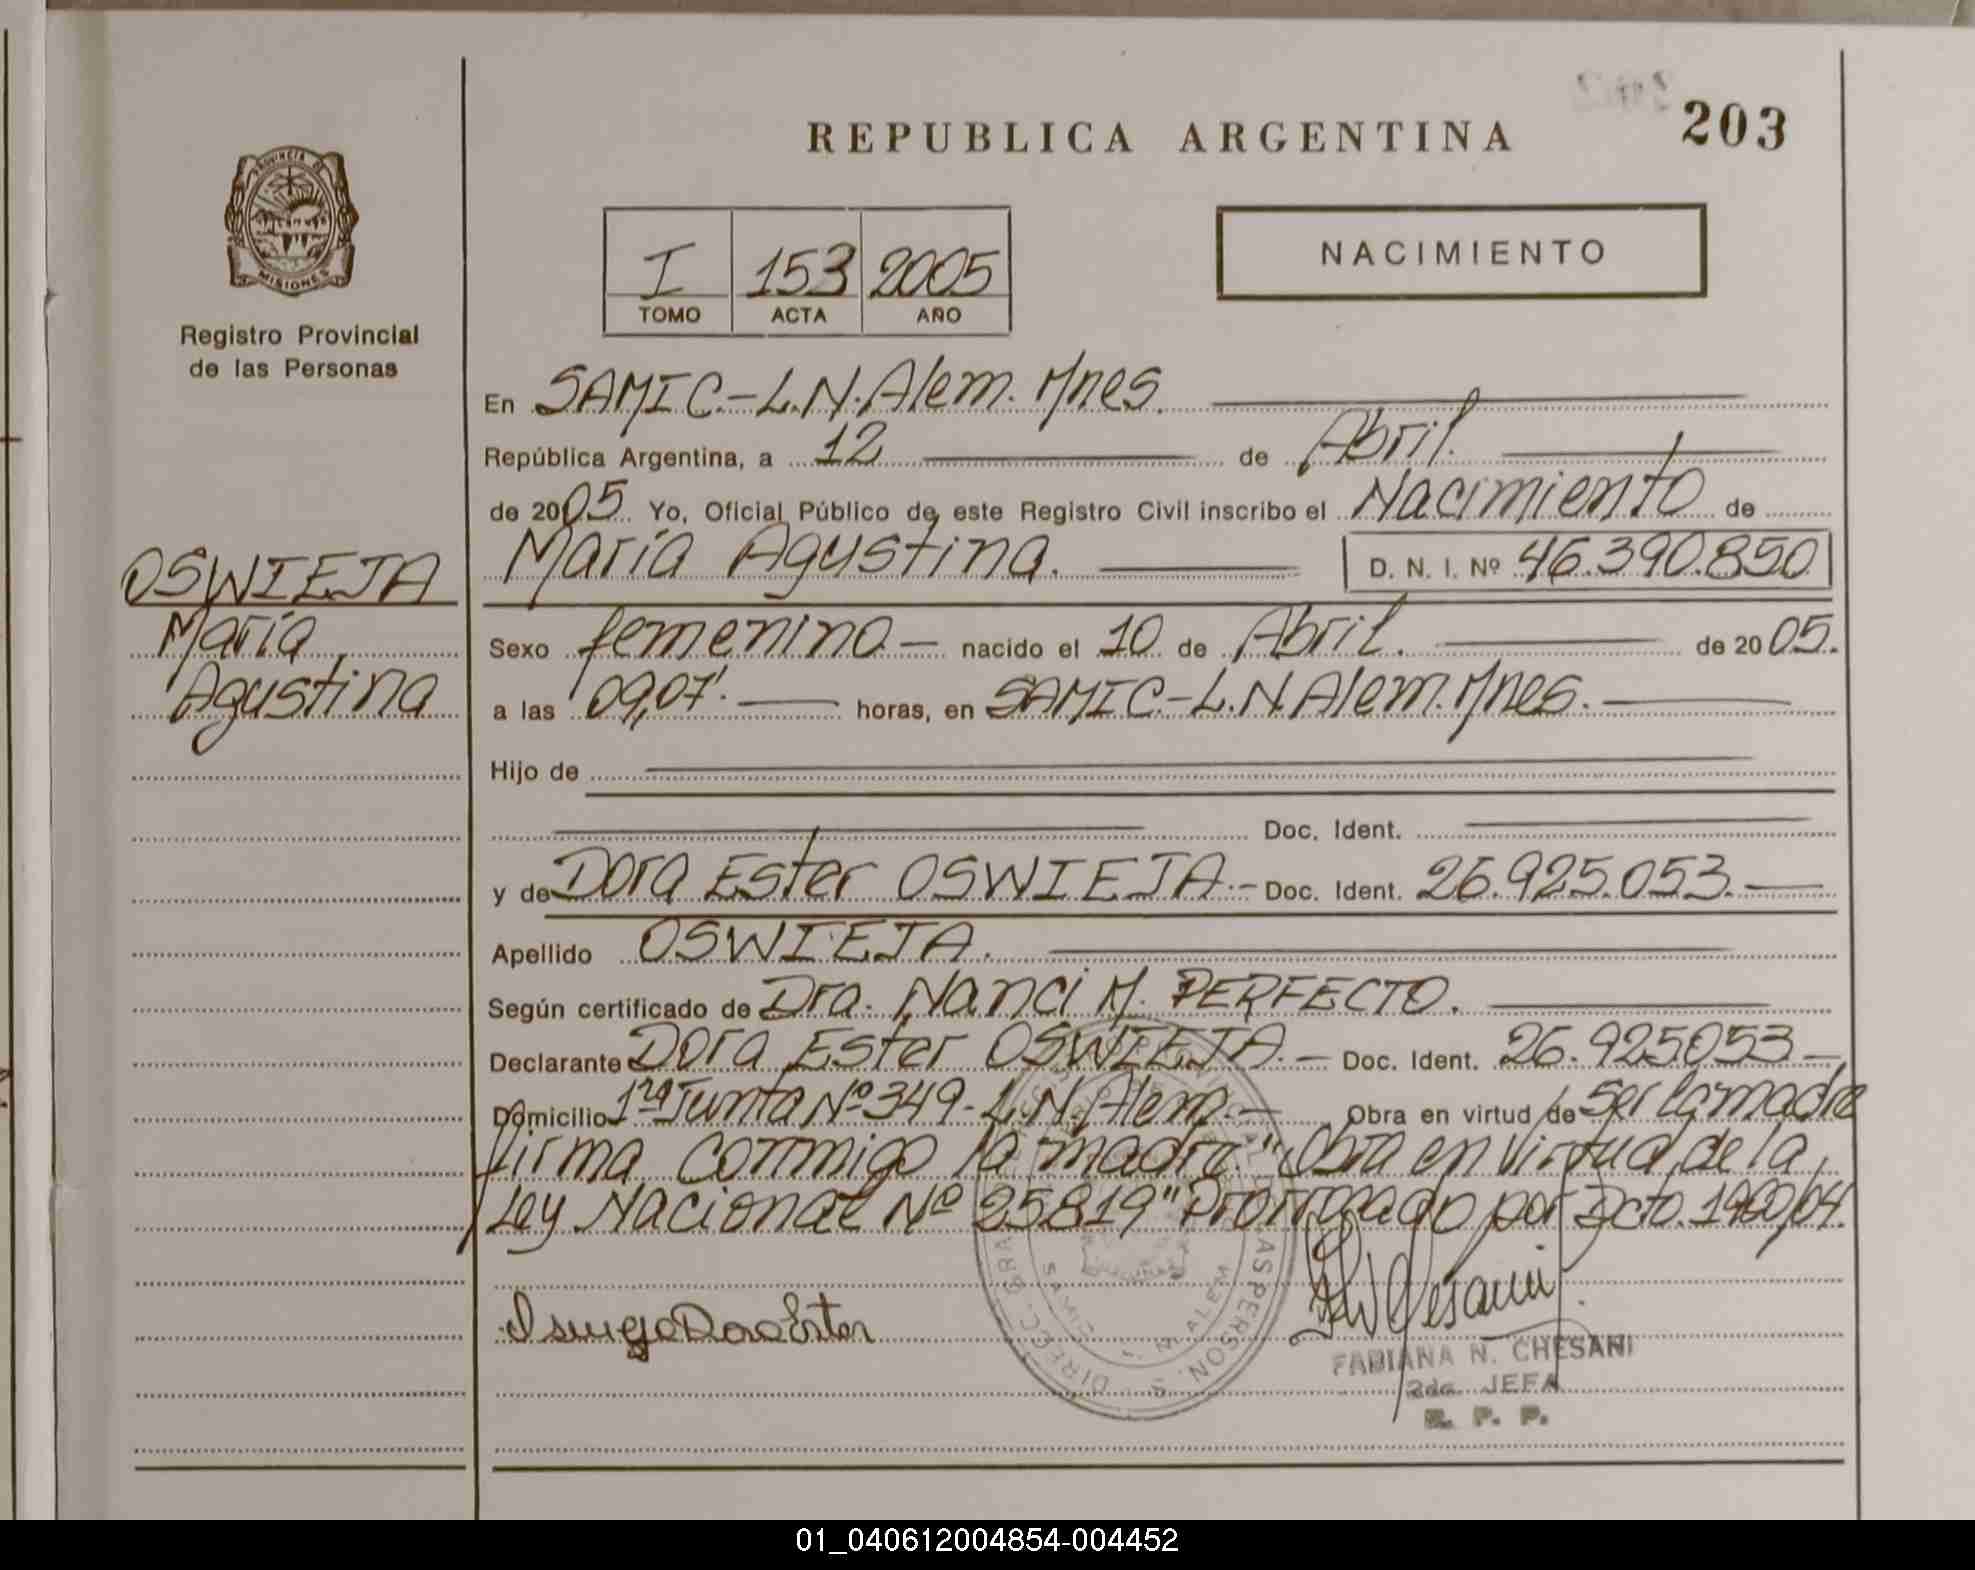 REPUBLICA ARGENTINA
203
PROVINCIA DE
MISIONES
Registro Provincial
de las Personas
I 153 2005
TOMO ACTA AÑO
NACIMIENTO
En SAMIC.-L.N.Alem.Mnes.
República Argentina, a 12 de Abril.
de 2005 Yo, Oficial Público de este Registro Civil inscribo el Nacimiento de
María Agustina. D. N. I. Nº 46.390.850
OSWIEJA
María
Agustina
Sexo femenino nacido el 10 de Abril. de 2005.
a las 09,07'. horas, en SAMIC-L.N.Alem.Mnes.
Hijo de
Doc. Ident.
y de Dora Ester OSWIEJA.- Doc. Ident. 26.925.053.
Apellido OSWIEJA.
Según certificado de Dra. Nanci M. PERFECTO.
Declarante Dora Ester OSWIEJA.- Doc. Ident. 26.925053
Domicilio 1ra Junta Nº 349-L.N.Alem.- Obra en virtud de Ser la madre
firma conmigo la madre. "Obra en virtud de la
Ley Nacional Nº 25819" Prorrogado por Dcto. 1960/04.
Dora Ester
FABIANA N. CHESANI
2da. JEFA
R. P. P.
01_040612004854-004452